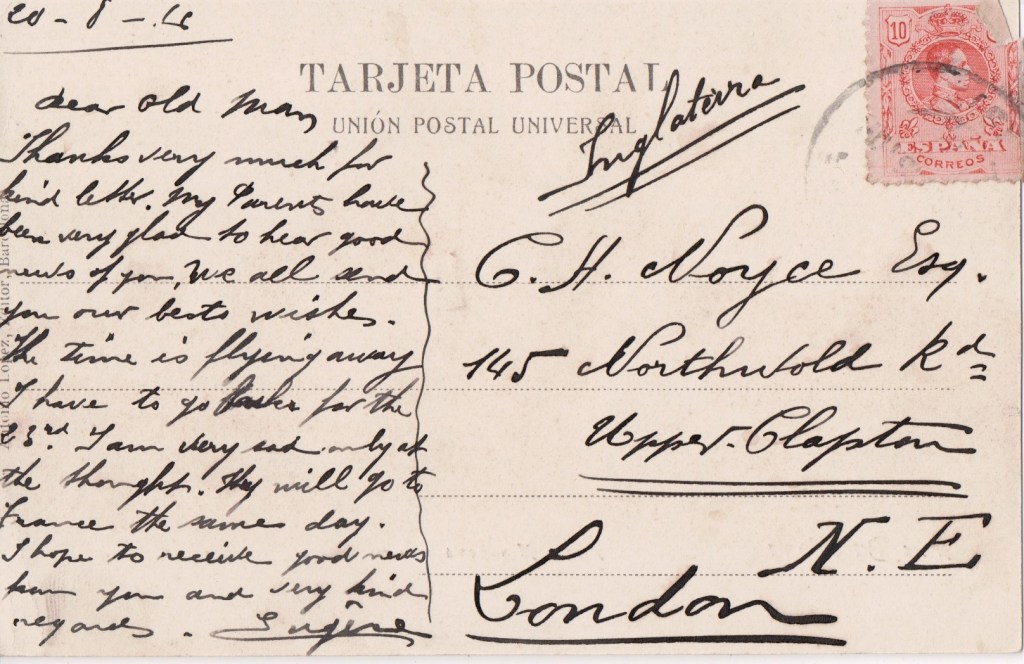 20 - 8 -
TARJETA POSTAL
UNIÓN POSTAL UNIVERSAL
Inglaterra
10
ESPAÑA
CORREOS
Dear old man
Thanks very much for
kind letter. My Parents have
been very glad to hear good
news of you, We all send
you our bests wishes.
The time is flying away
I have to go for the
23rd. I am very sad only at
the thought. They will go to
France the same day.
I hope to receive good news
from you and very kind
regards. Eugène
C. H. Noyce Esq.
145 Northwold Rd
Upper-Clapton
N. E
London
Antonio López, Editor, Barcelona